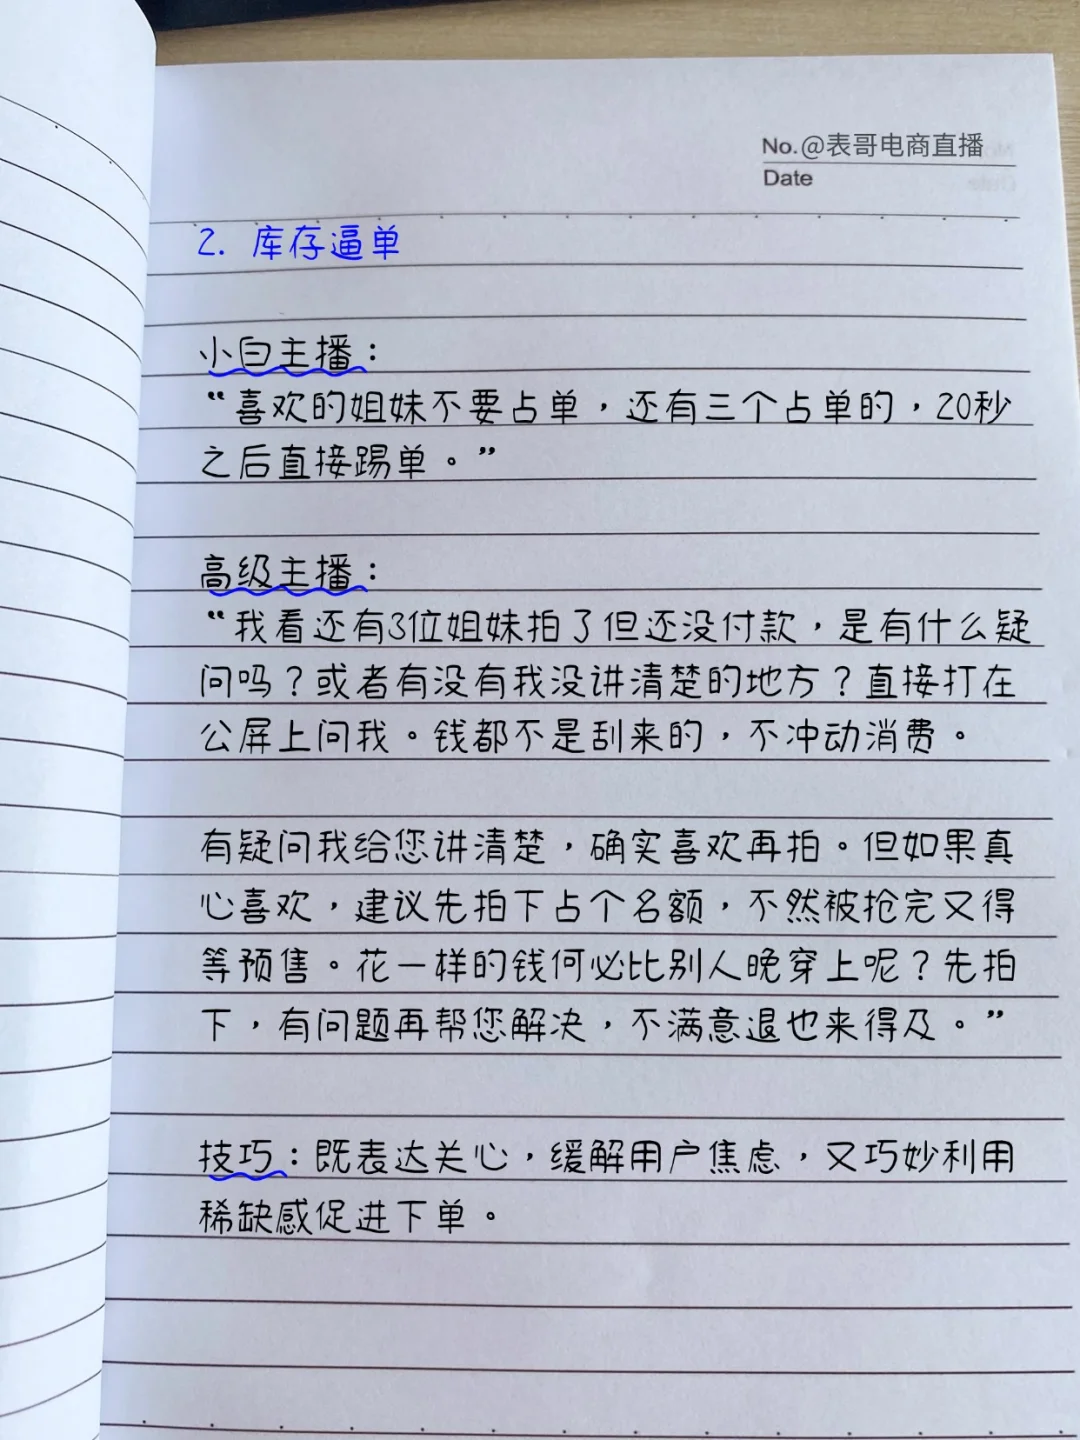 No.@表哥电商直播
Date
2. 库存逼单
小白主播：
“喜欢的姐妹不要占单，还有三个占单的，20秒
之后直接踢单。”
高级主播：
“我看还有3位姐妹拍了但还没付款，是有什么疑
问吗？或者有没有我没讲清楚的地方？直接打在
公屏上问我。钱都不是刮来的，不冲动消费。
有疑问我给您讲清楚，确实喜欢再拍。但如果真
心喜欢，建议先拍下占个名额，不然被抢完又得
等预售。花一样的钱何必比别人晚穿上呢？先拍
下，有问题再帮您解决，不满意退也来得及。”
技巧：既表达关心，缓解用户焦虑，又巧妙利用
稀缺感促进下单。